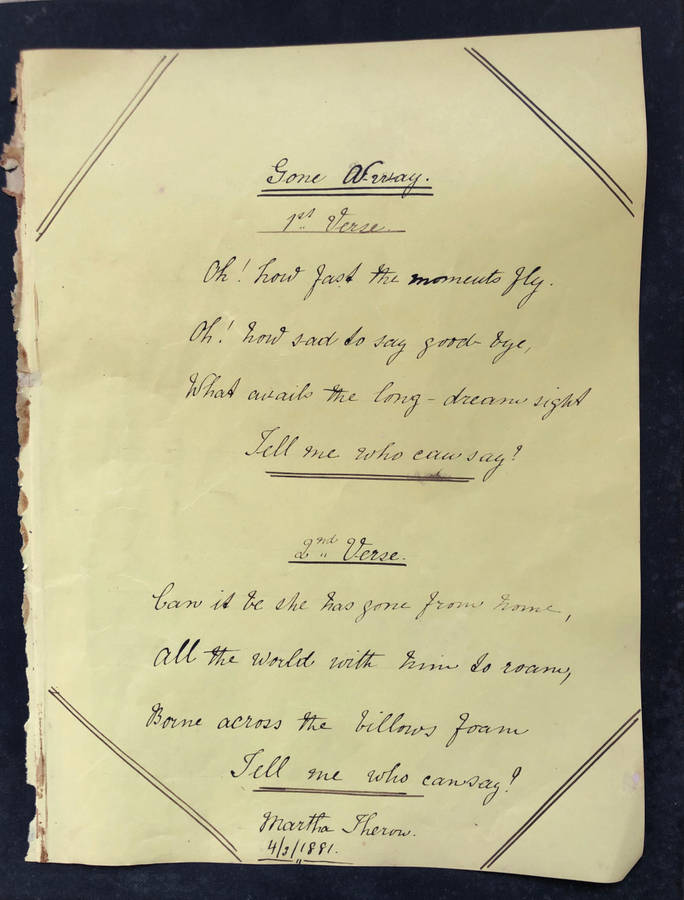 Gone Away.
1st Verse.
Oh! how fast the moments fly.
Oh! how sad to say good-bye,
What avails the long-dream sight
Tell me who can say?
2nd Verse.
Can it be she has gone from home,
All the world with him to roam,
Borne across the billows foam
Tell me who can say?
Martha Theron.
4/3/1881.